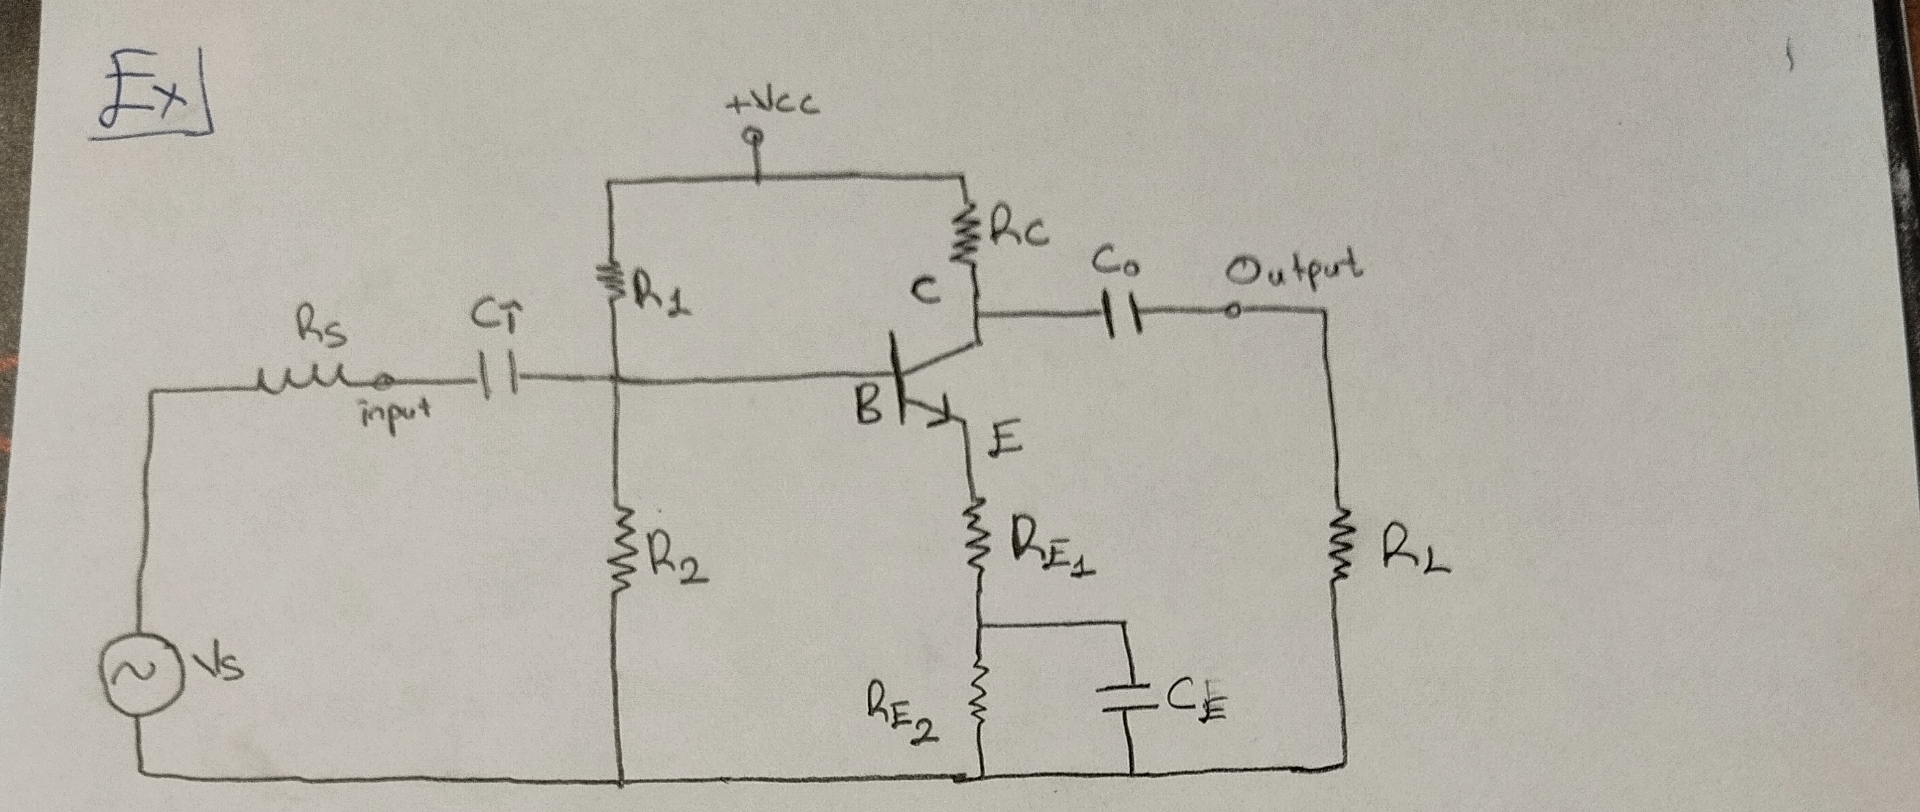 Ex
+Vcc
RC
R1
C
Co
Output
Rs
CI
input
B
E
R2
RE1
RL
Vs
RE2
CE